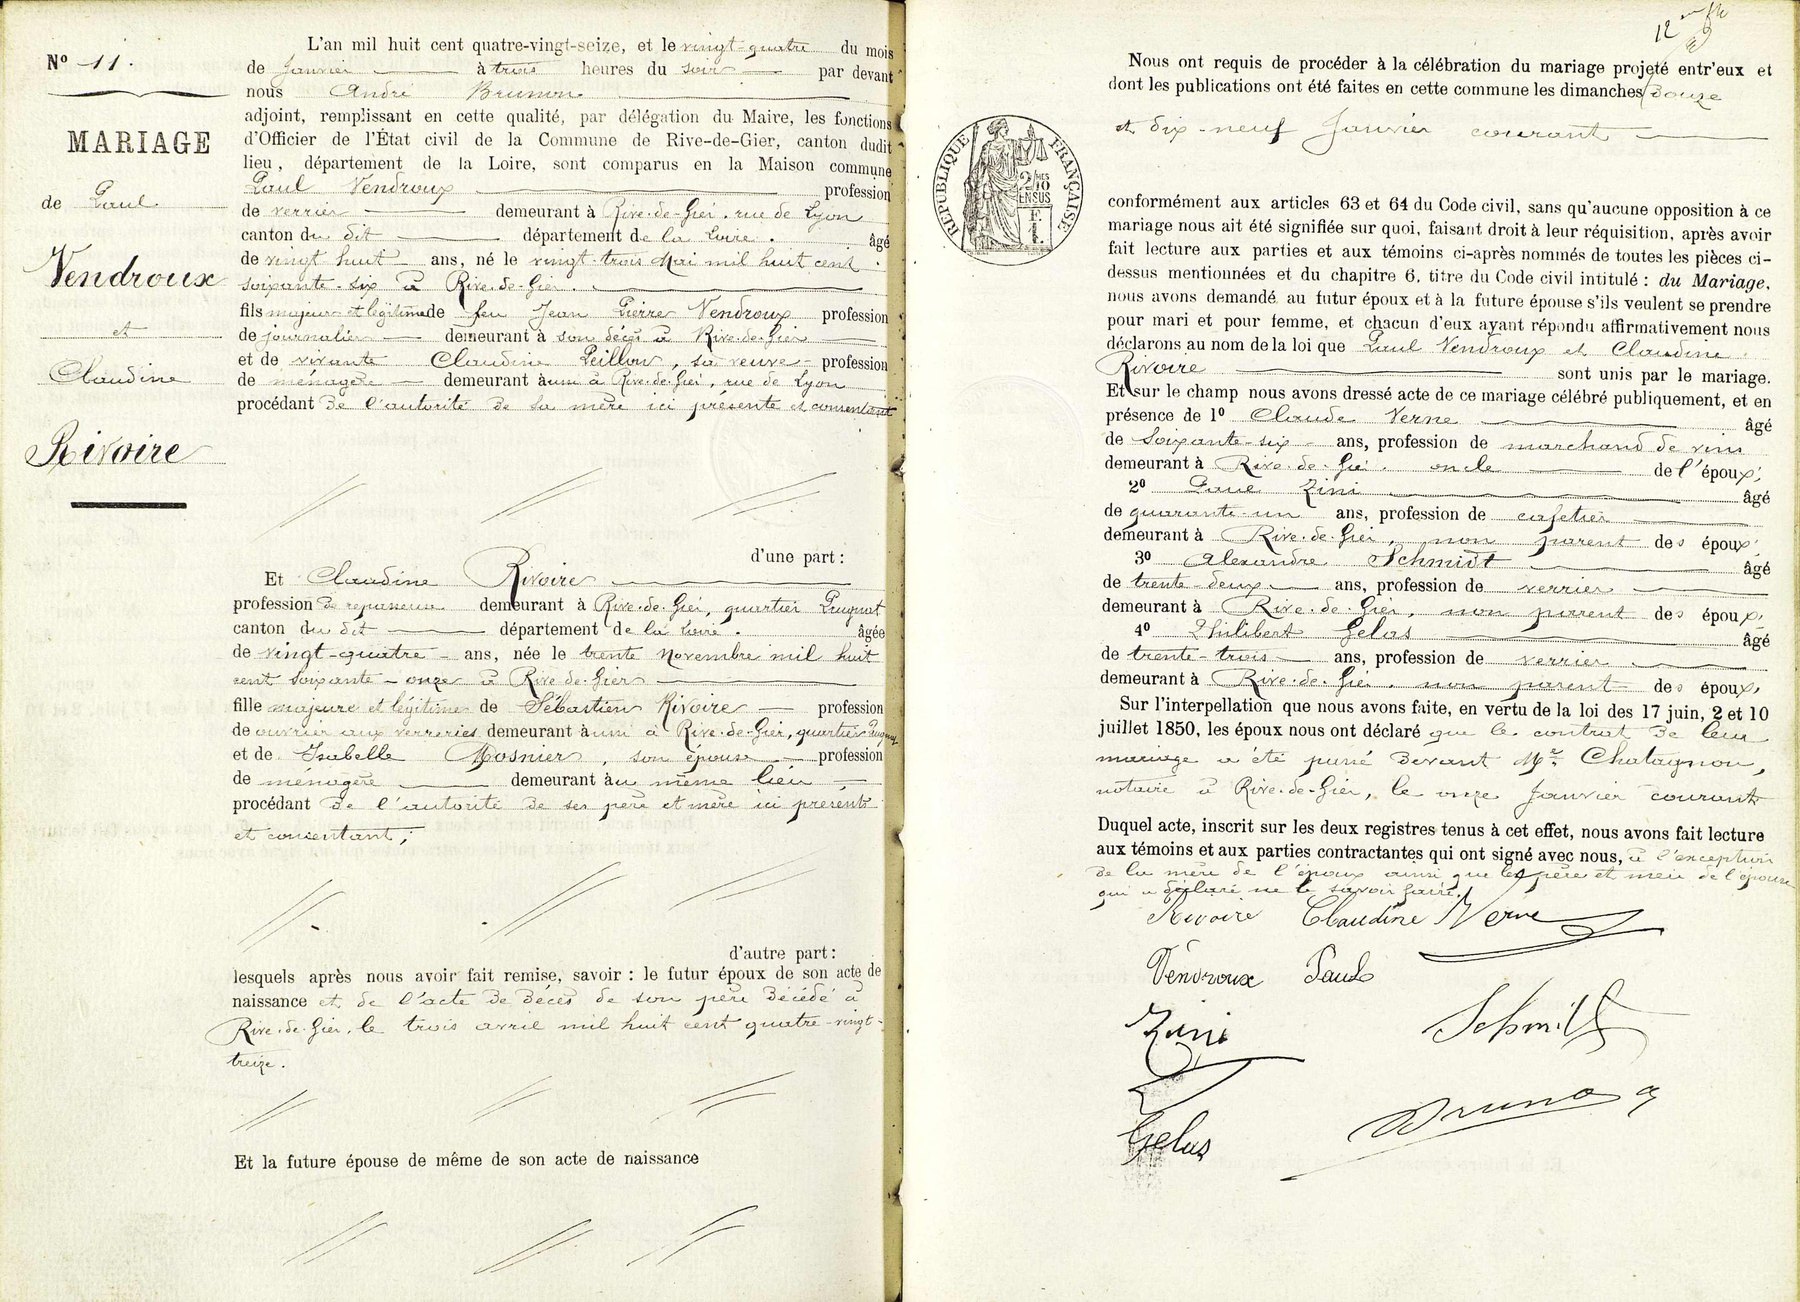 N° 11.
MARIAGE
de Paul
Vendroux
et
Claudine
Rivoire
L'an mil huit cent quatre-vingt-seize, et le vingt-quatre du mois
de Janvier à trois heures du soir par devant
nous André Brunon
adjoint, remplissant en cette qualité, par délégation du Maire, les fonctions
d'Officier de l'État civil de la Commune de Rive-de-Gier, canton dudit
lieu, département de la Loire, sont comparus en la Maison commune
Paul Vendroux profession
de verrier demeurant à Rive-de-Gier, rue de Lyon
canton du dit département de la Loire. âgé
de vingt huit ans, né le vingt-trois Mai mil huit cent
soixante-six à Rive-de-Gier.
fils majeur et légitime de feu Jean Pierre Vendroux profession
de journalier demeurant à son décès à Rive-de-Gier
et de vivante Claudine Peillon, sa veuve profession
de ménagère demeurant aussi à Rive-de-Gier, rue de Lyon
procédant de l'autorité de sa mère ici présente et consentant
d'une part :
Et Claudine Rivoire
profession de repasseuse demeurant à Rive-de-Gier, quartier
canton du dit département de la Loire. âgée
de vingt-quatre ans, née le trente Novembre mil huit
cent soixante-onze à Rive de Gier
fille majeure et légitime de Sébastien Rivoire profession
de ouvrier aux verreries demeurant aussi à Rive-de-Gier, quartier
et de Isabelle Mosnier, son épouse profession
de ménagère demeurant au même lieu
procédant de l'autorité de ses père et mère ici présents
et consentant;
d'autre part :
lesquels après nous avoir fait remise, savoir : le futur époux de son acte de
naissance et de l'acte de décès de son père décédé à
Rive-de-Gier, le trois avril mil huit cent quatre-vingt-
treize.
Et la future épouse de même de son acte de naissance
12
RÉPUBLIQUE FRANÇAISE
2/10
EN SUS
Nous ont requis de procéder à la célébration du mariage projeté entr'eux et
dont les publications ont été faites en cette commune les dimanches douze
et dix-neuf Janvier courant
conformément aux articles 63 et 64 du Code civil, sans qu'aucune opposition à ce
mariage nous ait été signifiée sur quoi, faisant droit à leur réquisition, après avoir
fait lecture aux parties et aux témoins ci-après nommés de toutes les pièces ci-
dessus mentionnées et du chapitre 6, titre du Code civil intitulé : du Mariage,
nous avons demandé au futur époux et à la future épouse s'ils veulent se prendre
pour mari et pour femme, et chacun d'eux ayant répondu affirmativement nous
déclarons au nom de la loi que Paul Vendroux et Claudine
Rivoire sont unis par le mariage.
Et sur le champ nous avons dressé acte de ce mariage célébré publiquement, et en
présence de 1° Claude Verne âgé
de Soixante-six ans, profession de marchand de vins
demeurant à Rive-de-Gier. oncle de l'époux;
2° Paul Zini âgé
de quarante-un ans, profession de cafetier
demeurant à Rive-de-Gier, non parent des époux;
3° Alexandre Schmidt âgé
de trente-deux ans, profession de verrier
demeurant à Rive-de-Gier, non parent des époux;
4° Philibert Gelas âgé
de trente-trois ans, profession de verrier
demeurant à Rive-de-Gier. non parent des époux.
Sur l'interpellation que nous avons faite, en vertu de la loi des 17 juin, 2 et 10
juillet 1850, les époux nous ont déclaré que le contrat de leur
mariage a été passé devant Me Chatagnon,
notaire à Rive-de-Gier, le onze Janvier courant
Duquel acte, inscrit sur les deux registres tenus à cet effet, nous avons fait lecture
aux témoins et aux parties contractantes qui ont signé avec nous, à l'exception
de la mère de l'époux ainsi que les père et mère de l'épouse
qui a déclaré ne le savoir faire.
Rivoire Claudine Verne
Vendroux Paul
Zini Schmidt
Gelas Brunon